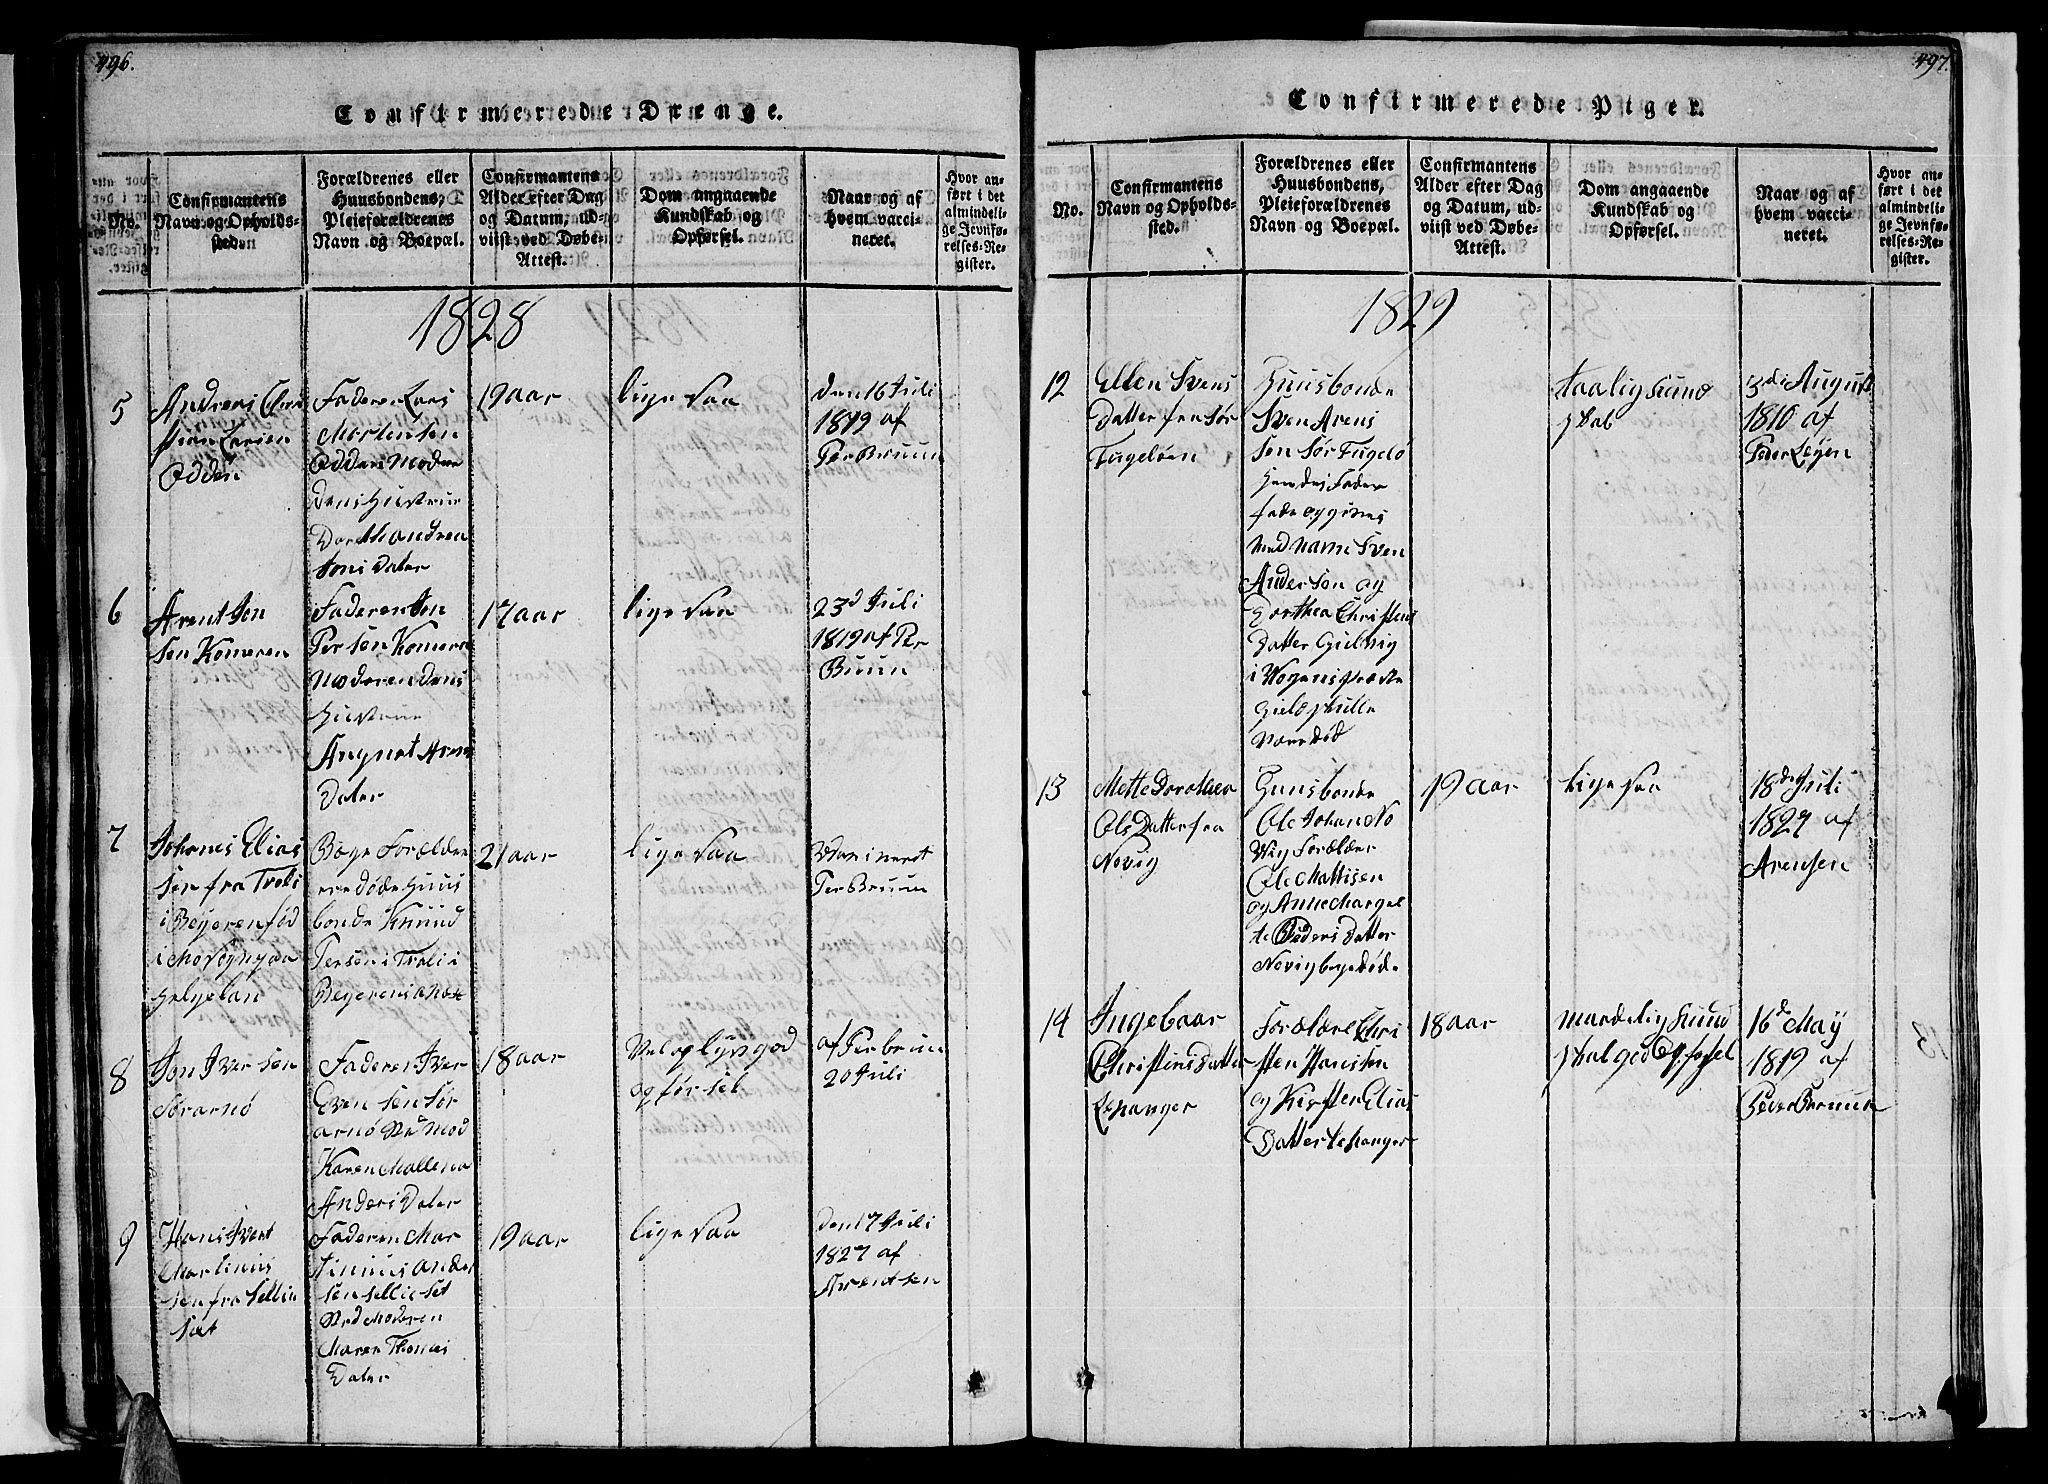 496.
Confirmerede Drenge.
No.
Confirmantens
Navn og Opholds-
sted.
Forældrenes eller
Huusbondens,
Pleieforældrenes
Navn og Boepæl.
Confirmantens
Alder efter Dag
og Datum, ud-
viist ved Døbe-
Attest.
Dom angaaende
Kundskab og
Opførsel.
Naar og af
hvem vacci-
neret.
Hvor an-
ført i det
almindeli-
ge Jevnfø-
relses-Re-
gister.
1828
5
Andreas Chri
stian Larsen
Odden
Faderen Lars
Mortensen
Odden Moder
Dens Hustrue
Dorthe Andrea
Jons Dater
19 aar
lige saa
den 16 Juli
1819 af
Per Bruun
6
Arent Jon
sen Komeren
Faderen Jon
Persen Komern
Moderen Dens
Hustrue
Angnet Arens
Dater
17 aar
lige saa
23d Juli
1819 af Per
Bruun
7
Johanes Elias
sen fra Troli
i Beyeren fød
i
Helgelan
Bege Forælder
ere døde Huus
bonde Knuud
Persen i Troli i
Beyerens
21 aar
lige saa
Per Bruun
8
Jon Iversen
Sørarnø
Faderen Iver
Evensen Sør
arnø Med Mod
Karen Mallena
Anders Dater
18 aar
Vel oplyst god
opførsel
af Per bruun
20 Juli
9
Hans Ivert
Martinus
sen fra Selli
sæt
Faderen Mar
tinius Ander
sen Selliset
Med Modren
Maren Thomas
Dater
19 aar
lige saa
den 17 Juli
1827 af
Arentsen
497.
Confirmerede Piger.
No.
Confirmantens
Navn og Opholds-
sted.
Forældrenes eller
Huusbondens,
Pleieforældrenes
Navn og Boepæl.
Confirmantens
Alder efter Dag
og Datum, ud-
viist ved Døbe-
Attest.
Dom angaaende
Kundskab og
Opførsel.
Naar og af
hvem vacci-
neret.
Hvor an-
ført i det
almindeli-
ge Jevnfø-
relses-Re-
gister.
1829
12
Ellen Svens
Datter fra Sør
Fugeløen
Huusbonde
Sven Arens
Sen Sør Fugelø
Hendes Fader
med Navn Sven
Andersen og
Dorthea Christens
Datter Gielvig
i
Være død
taalig kund
skab
3di August
1810 af
Peder Leyen
13
Mette Dorothea
Ols Datter fra
Novig
Huusbonde
Ole Johan No
Wig Forælder
Ole Mattisen
og Anne Margre
te Peders Datter
Novig bege døde
19 aar
lige saa
18de Juli
1827 af
Arensen
14
Ingebaar
Christens Datter
Lekanger
Forældre Chri
sten Hansen
og Kirsten Elias
Datter Lekanger
18 aar
maadelig kund
skab god Opførsel
16de May
1819 af
Peder Bruun